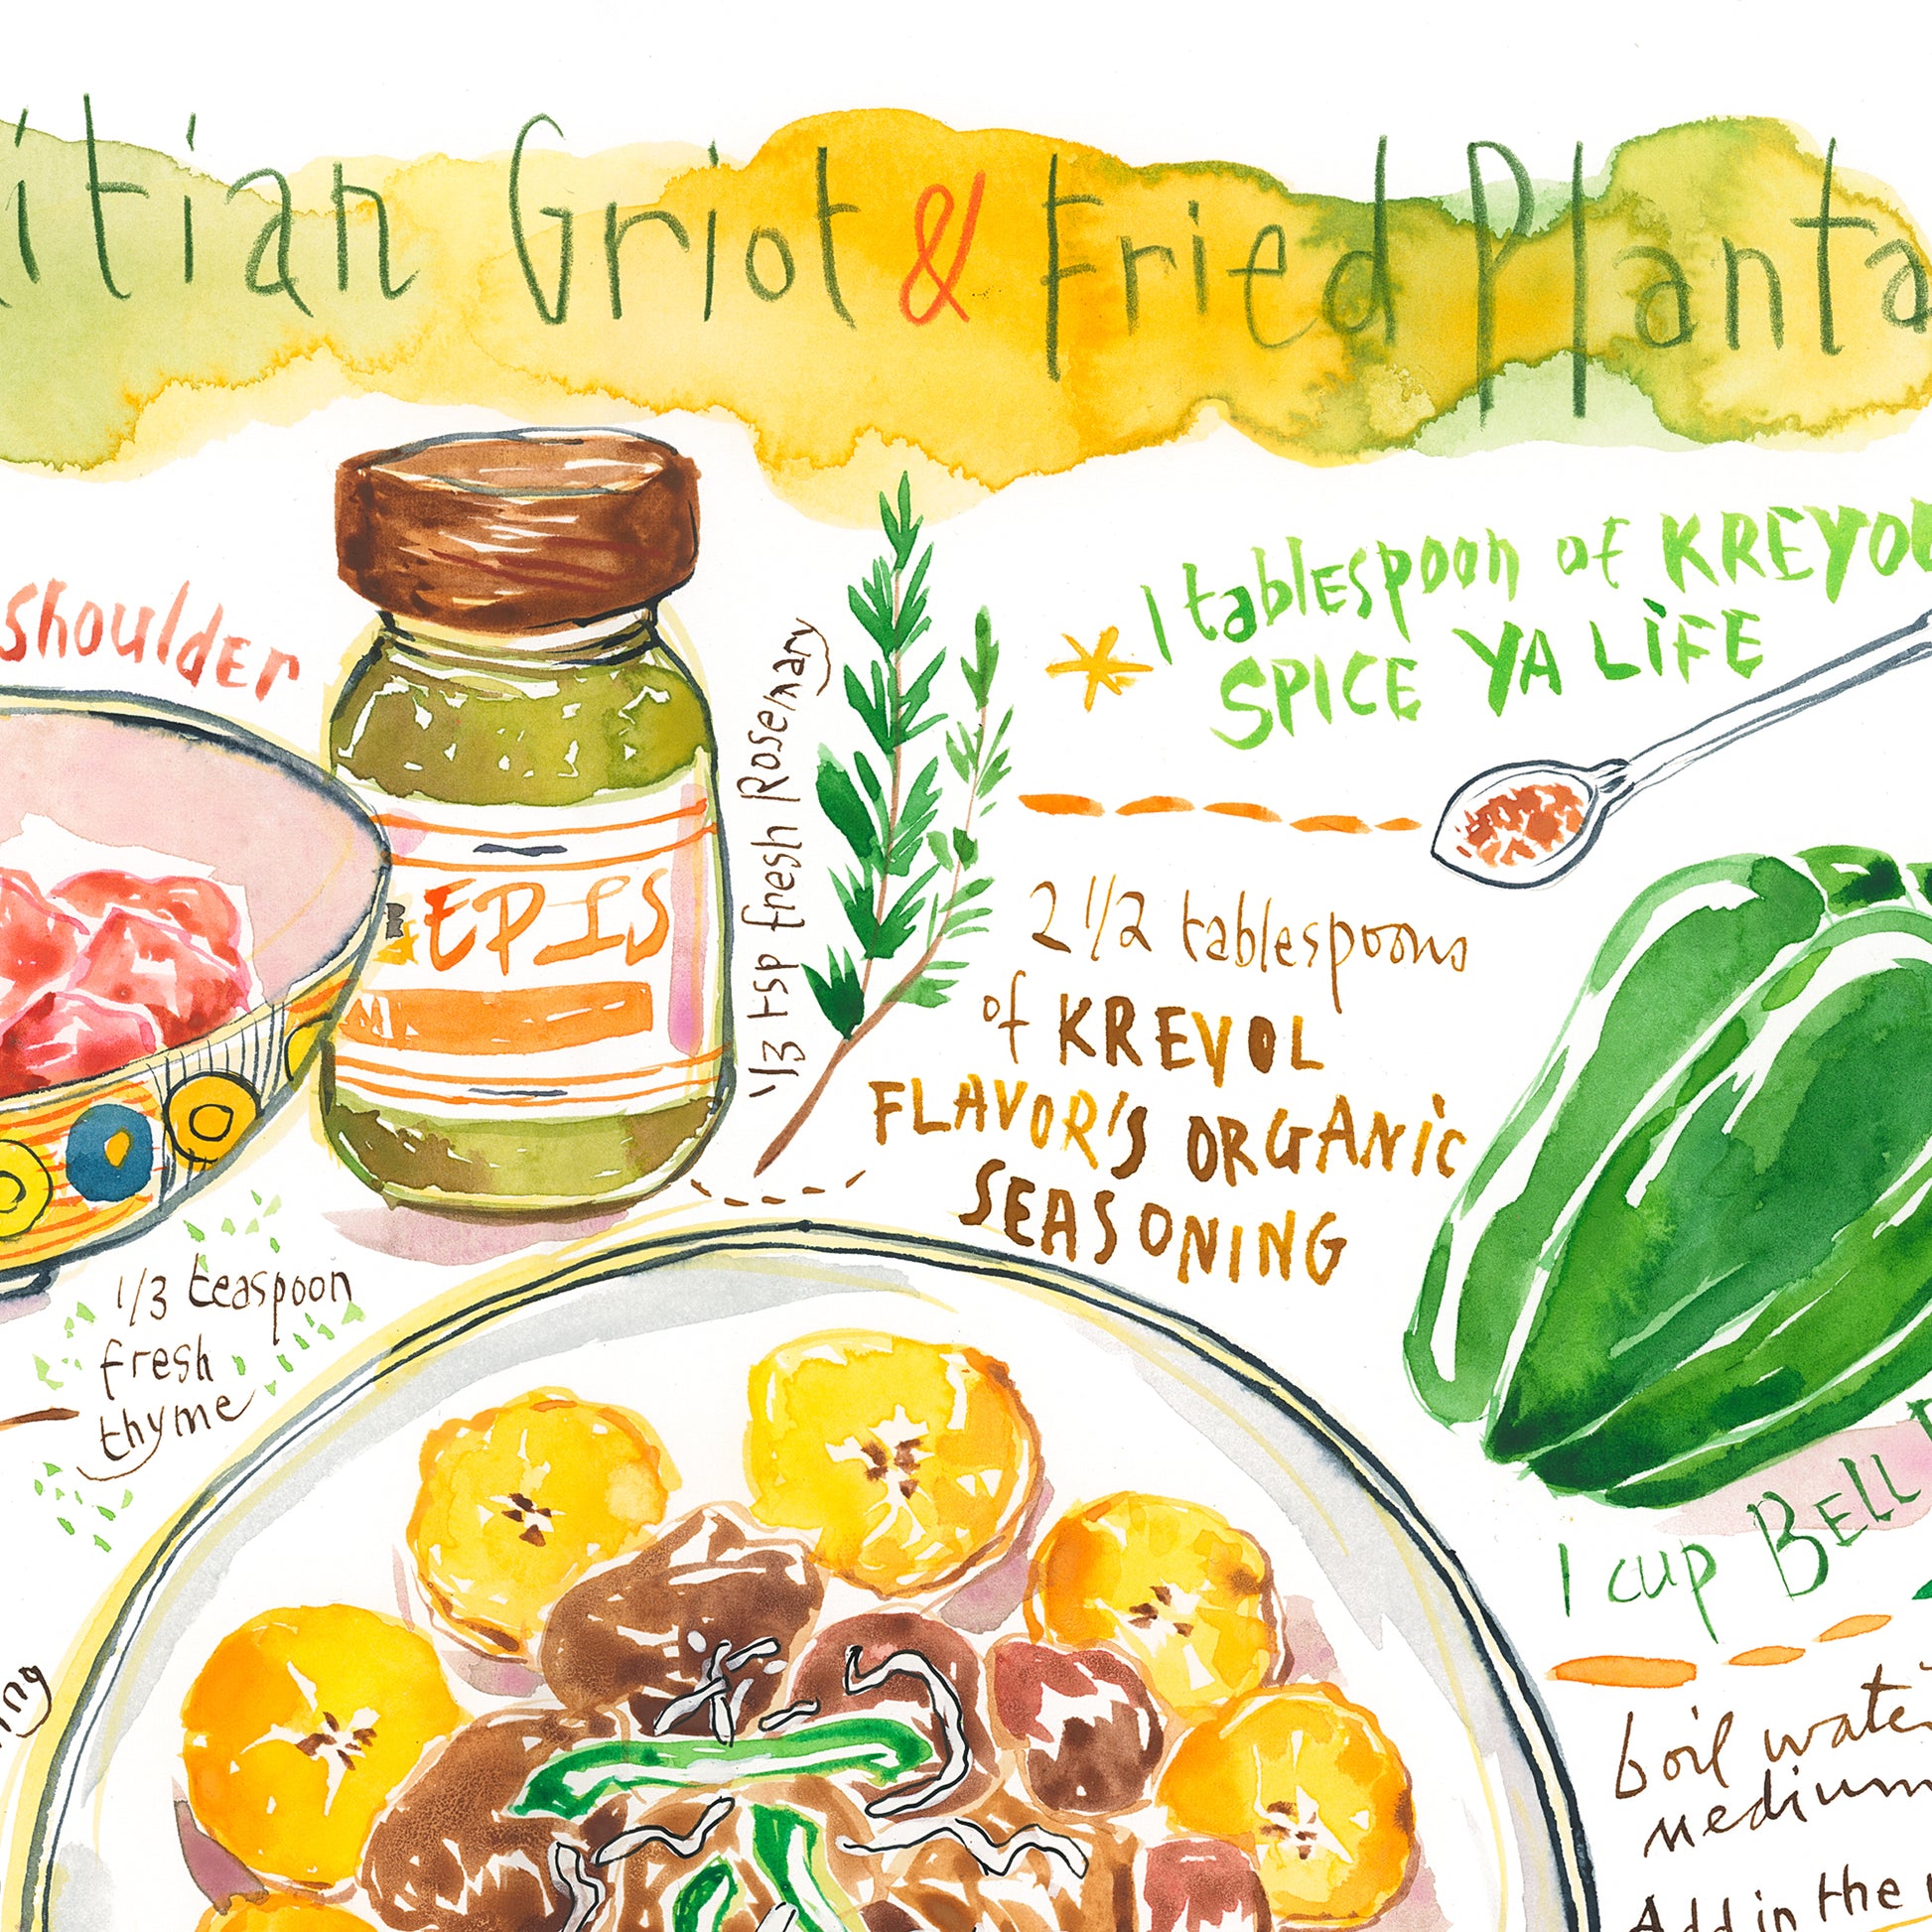 itian Griot & Fried Planta
shoulder
EPIS
1/3 tsp fresh Rosemary
* 1 tablespoon of KREYOL
SPICE YA LIFE
2 1/2 tablespoons
of KREYOL
FLAVOR'S ORGANIC
SEASONING
1/3 teaspoon
fresh
thyme
1 cup BELL
boil water
medium
Add in the